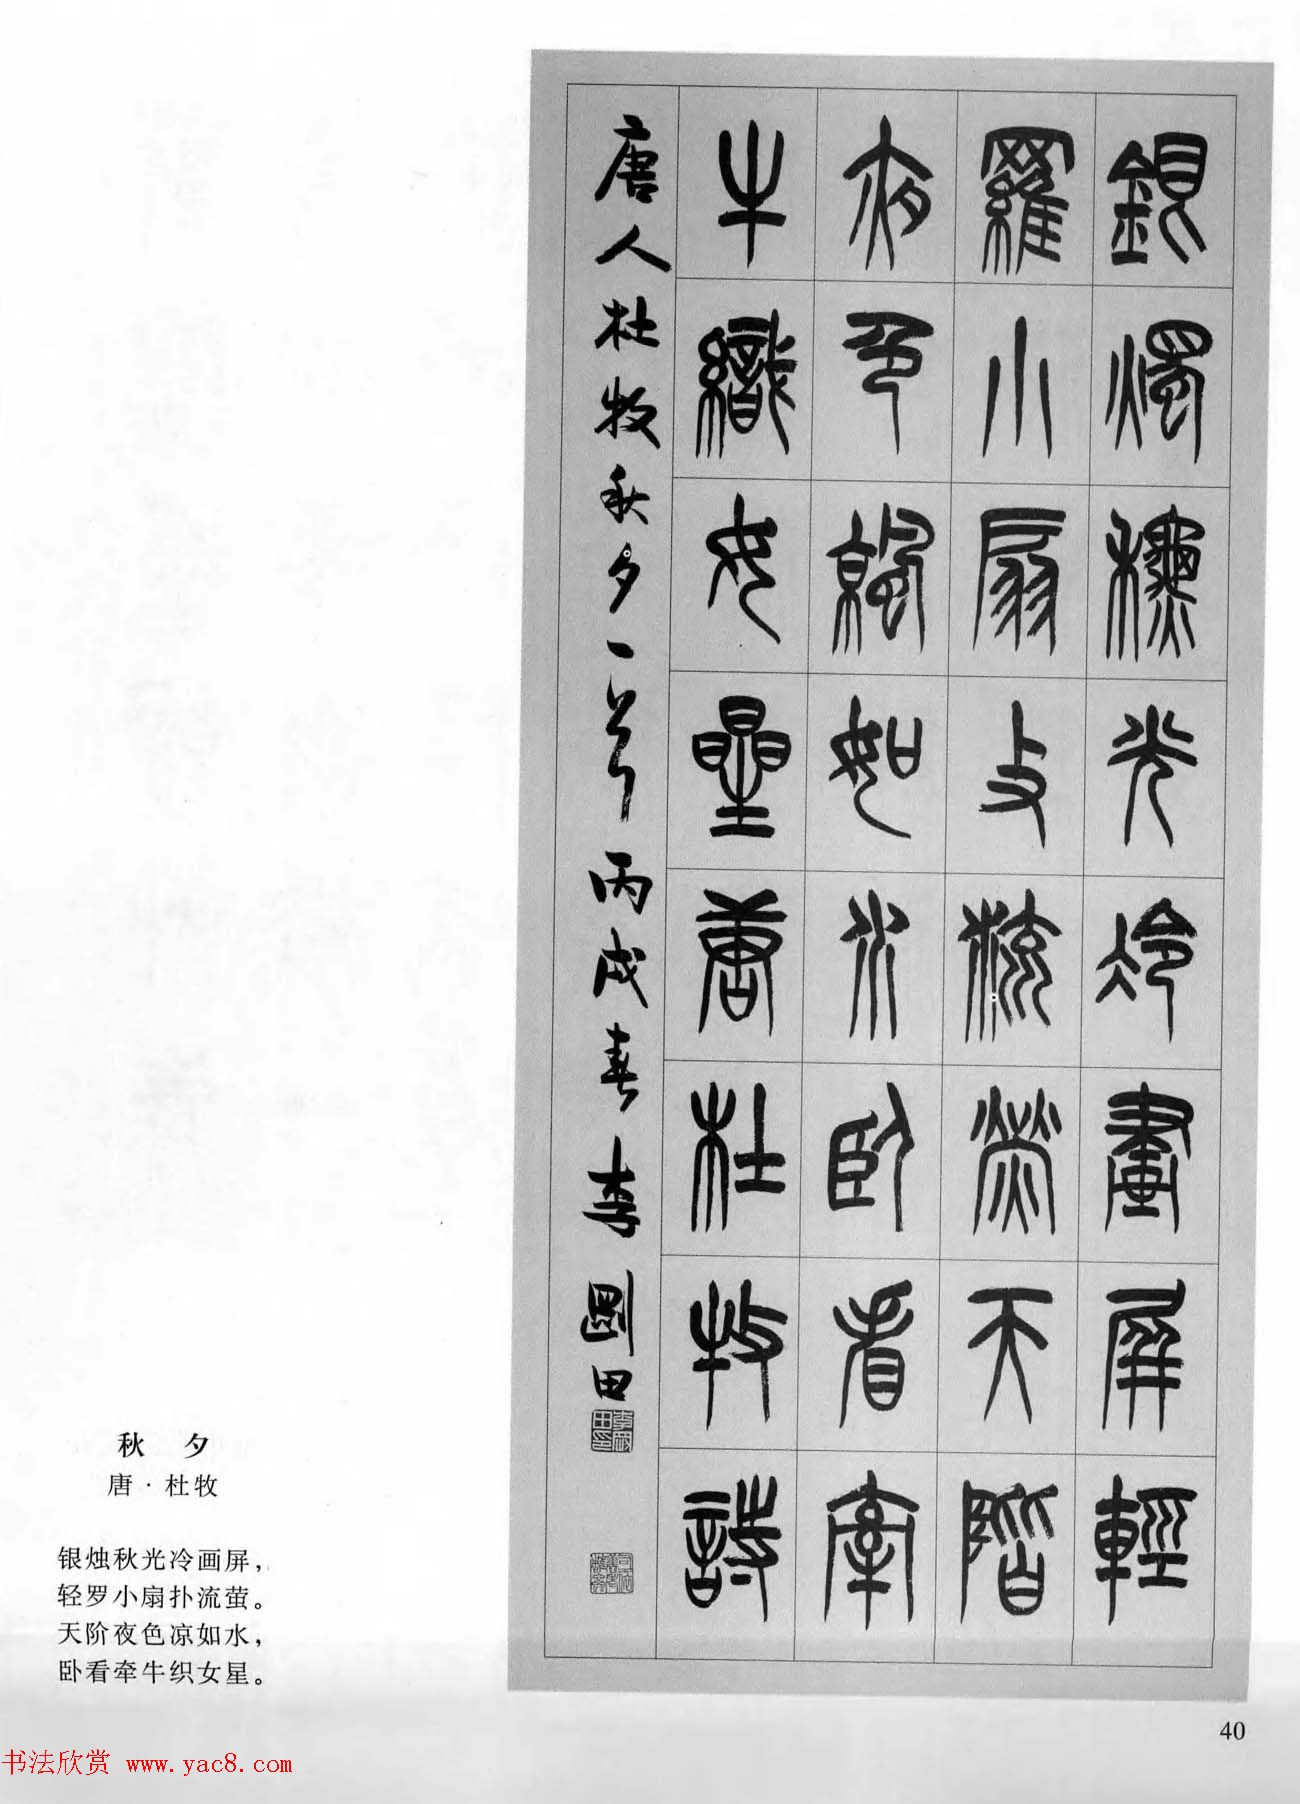 銀燭穐光冷畫屏輕
羅小扇攴流螢天階
夜色涼如水臥看牽
牛織女星唐杜牧詩
唐人杜牧秋夕一首丙戌春李剛田
秋 夕
唐·杜牧
银烛秋光冷画屏，
轻罗小扇扑流萤。
天阶夜色凉如水，
卧看牵牛织女星。
40
书法欣赏 www.yac8.com